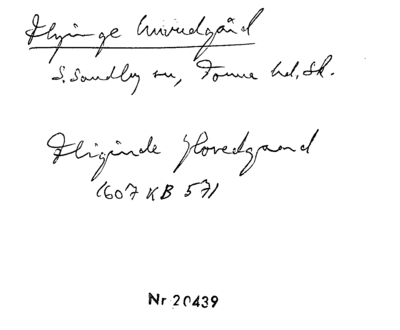 Flyinge huvudgård
S. Sandby sn, Torna hd, Sk.
Fliginde Hovedgaard
1607 KB 571
Nr 20439